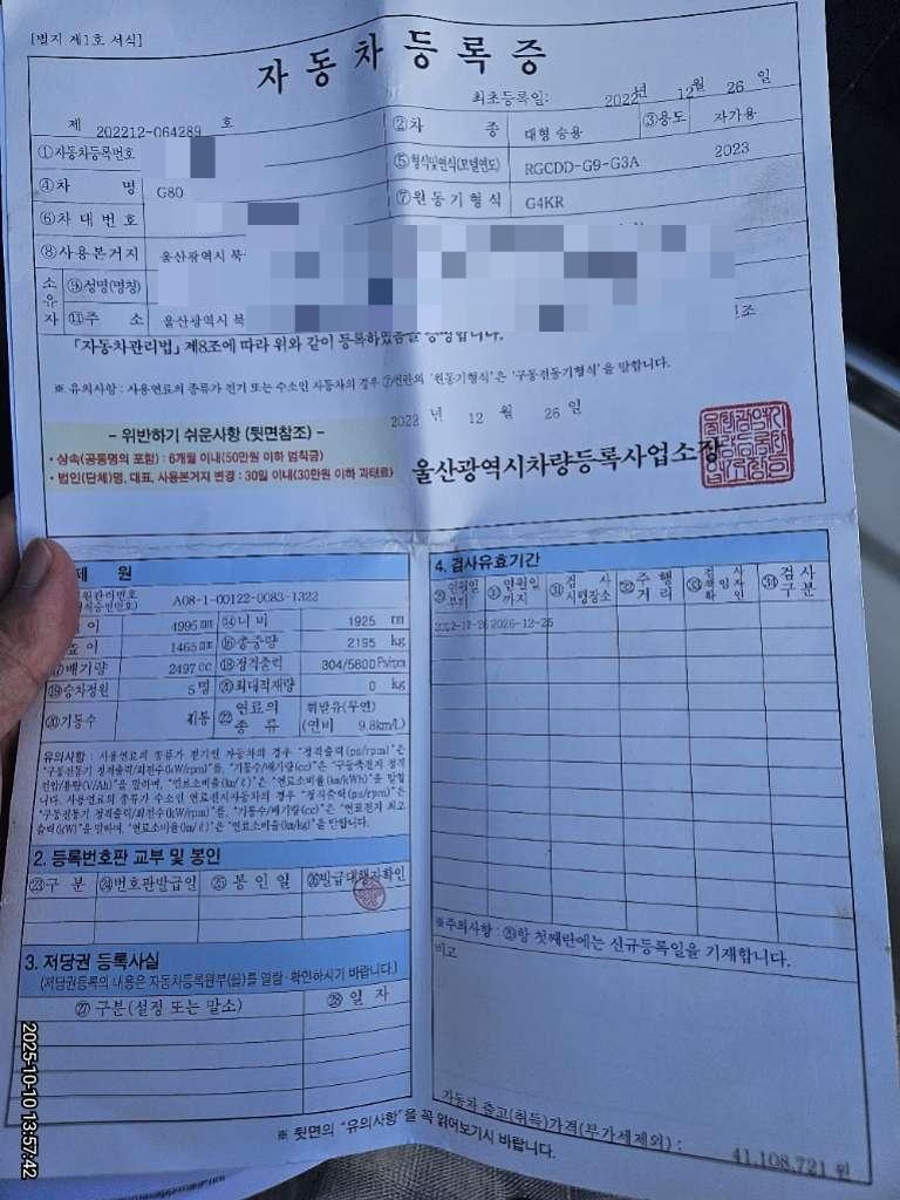 [별지 제1호 서식]
자동차등록증
최초등록일: 2022년 12월 26일
제 202212-064289 호
②차 종 대형 승용 ③용도 자가용
①자동차등록번호
⑤형식및연식(모델연도) RGCDD-G9-G3A 2023
④차 명 G80
⑦원동기형식 G4KR
⑥차대번호
⑧사용본거지 울산광역시 북
소유자
⑨성명(명칭)
⑪주 소 울산광역시 북
「자동차관리법」 제8조에 따라 위와 같이 등록하였음을 증명합니다.
※ 유의사항 : 사용연료의 종류가 전기 또는 수소인 자동차의 경우 ⑦란의 '원동기형식'은 '구동전동기형식'을 말합니다.
2022 년 12 월 26 일
- 위반하기 쉬운사항 (뒷면참조) -
• 상속(공동명의 포함) : 6개월 이내(50만원 이하 범칙금)
• 법인(단체)명, 대표, 사용본거지 변경 : 30일 이내(30만원 이하 과태료)
울산광역시차량등록사업소장
제 원
A08-1-00122-0083-1322
이 4995 mm ⑭너 비 1925 m
높 이 1465 mm ⑯총중량 2195 kg
⑰배기량 2497 cc ⑱정격출력 304/5800 Ps/rpm
⑲승차정원 5 명 ⑳최대적재량 0 kg
기통수 4기통 ㉒연료의 종 류 휘발유(무연) (연비 9.8km/L)
유의사항 : 사용연료의 종류가 전기인 자동차의 경우 "정격출력(ps/rpm)"은
"구동전동기 정격출력/회전수(kW/rpm)"를, "기통수/배기량(cc)"은 "구동축전지 정격
전압/용량(V/Ah)"을 말하며, "연료소비율(km/ℓ)"은 "연료소비율(km/kWh)"을 말합
니다. 사용연료의 종류가 수소인 연료전지자동차의 경우 "정격출력(ps/rpm)"은
"구동전동기 정격출력/회전수(kW/rpm)"를, "기통수/배기량(cc)"은 "연료전지 최고
출력(kW)"을 말하며, "연료소비율(km/ℓ)"은 "연료소비율(km/kg)"을 말합니다.
2. 등록번호판 교부 및 봉인
㉓구 분 ㉔번호판발급일 ㉕봉 인 일 ㉖발급대행자확인
3. 저당권 등록사실
(저당권등록의 내용은 자동차등록원부(을)를 열람·확인하시기 바랍니다.)
㉗ 구분(설정 또는 말소) ㉘ 일 자
4. 검사유효기간
㉙연월일 부터 ㉚연월일 까지 ㉛검 사 시행장소 ㉜주 행 거 리 ㉝검 사 책임자 확 인 ㉞검 사 구 분
2022-12-26 2026-12-25
※주의사항 : ㉙항 첫째란에는 신규등록일을 기재합니다.
비고
자동차 출고(취득)가격(부가세제외) : 41,108,721 원
※ 뒷면의 "유의사항"을 꼭 읽어보기시 바랍니다.
2025-10-10 13:57:42